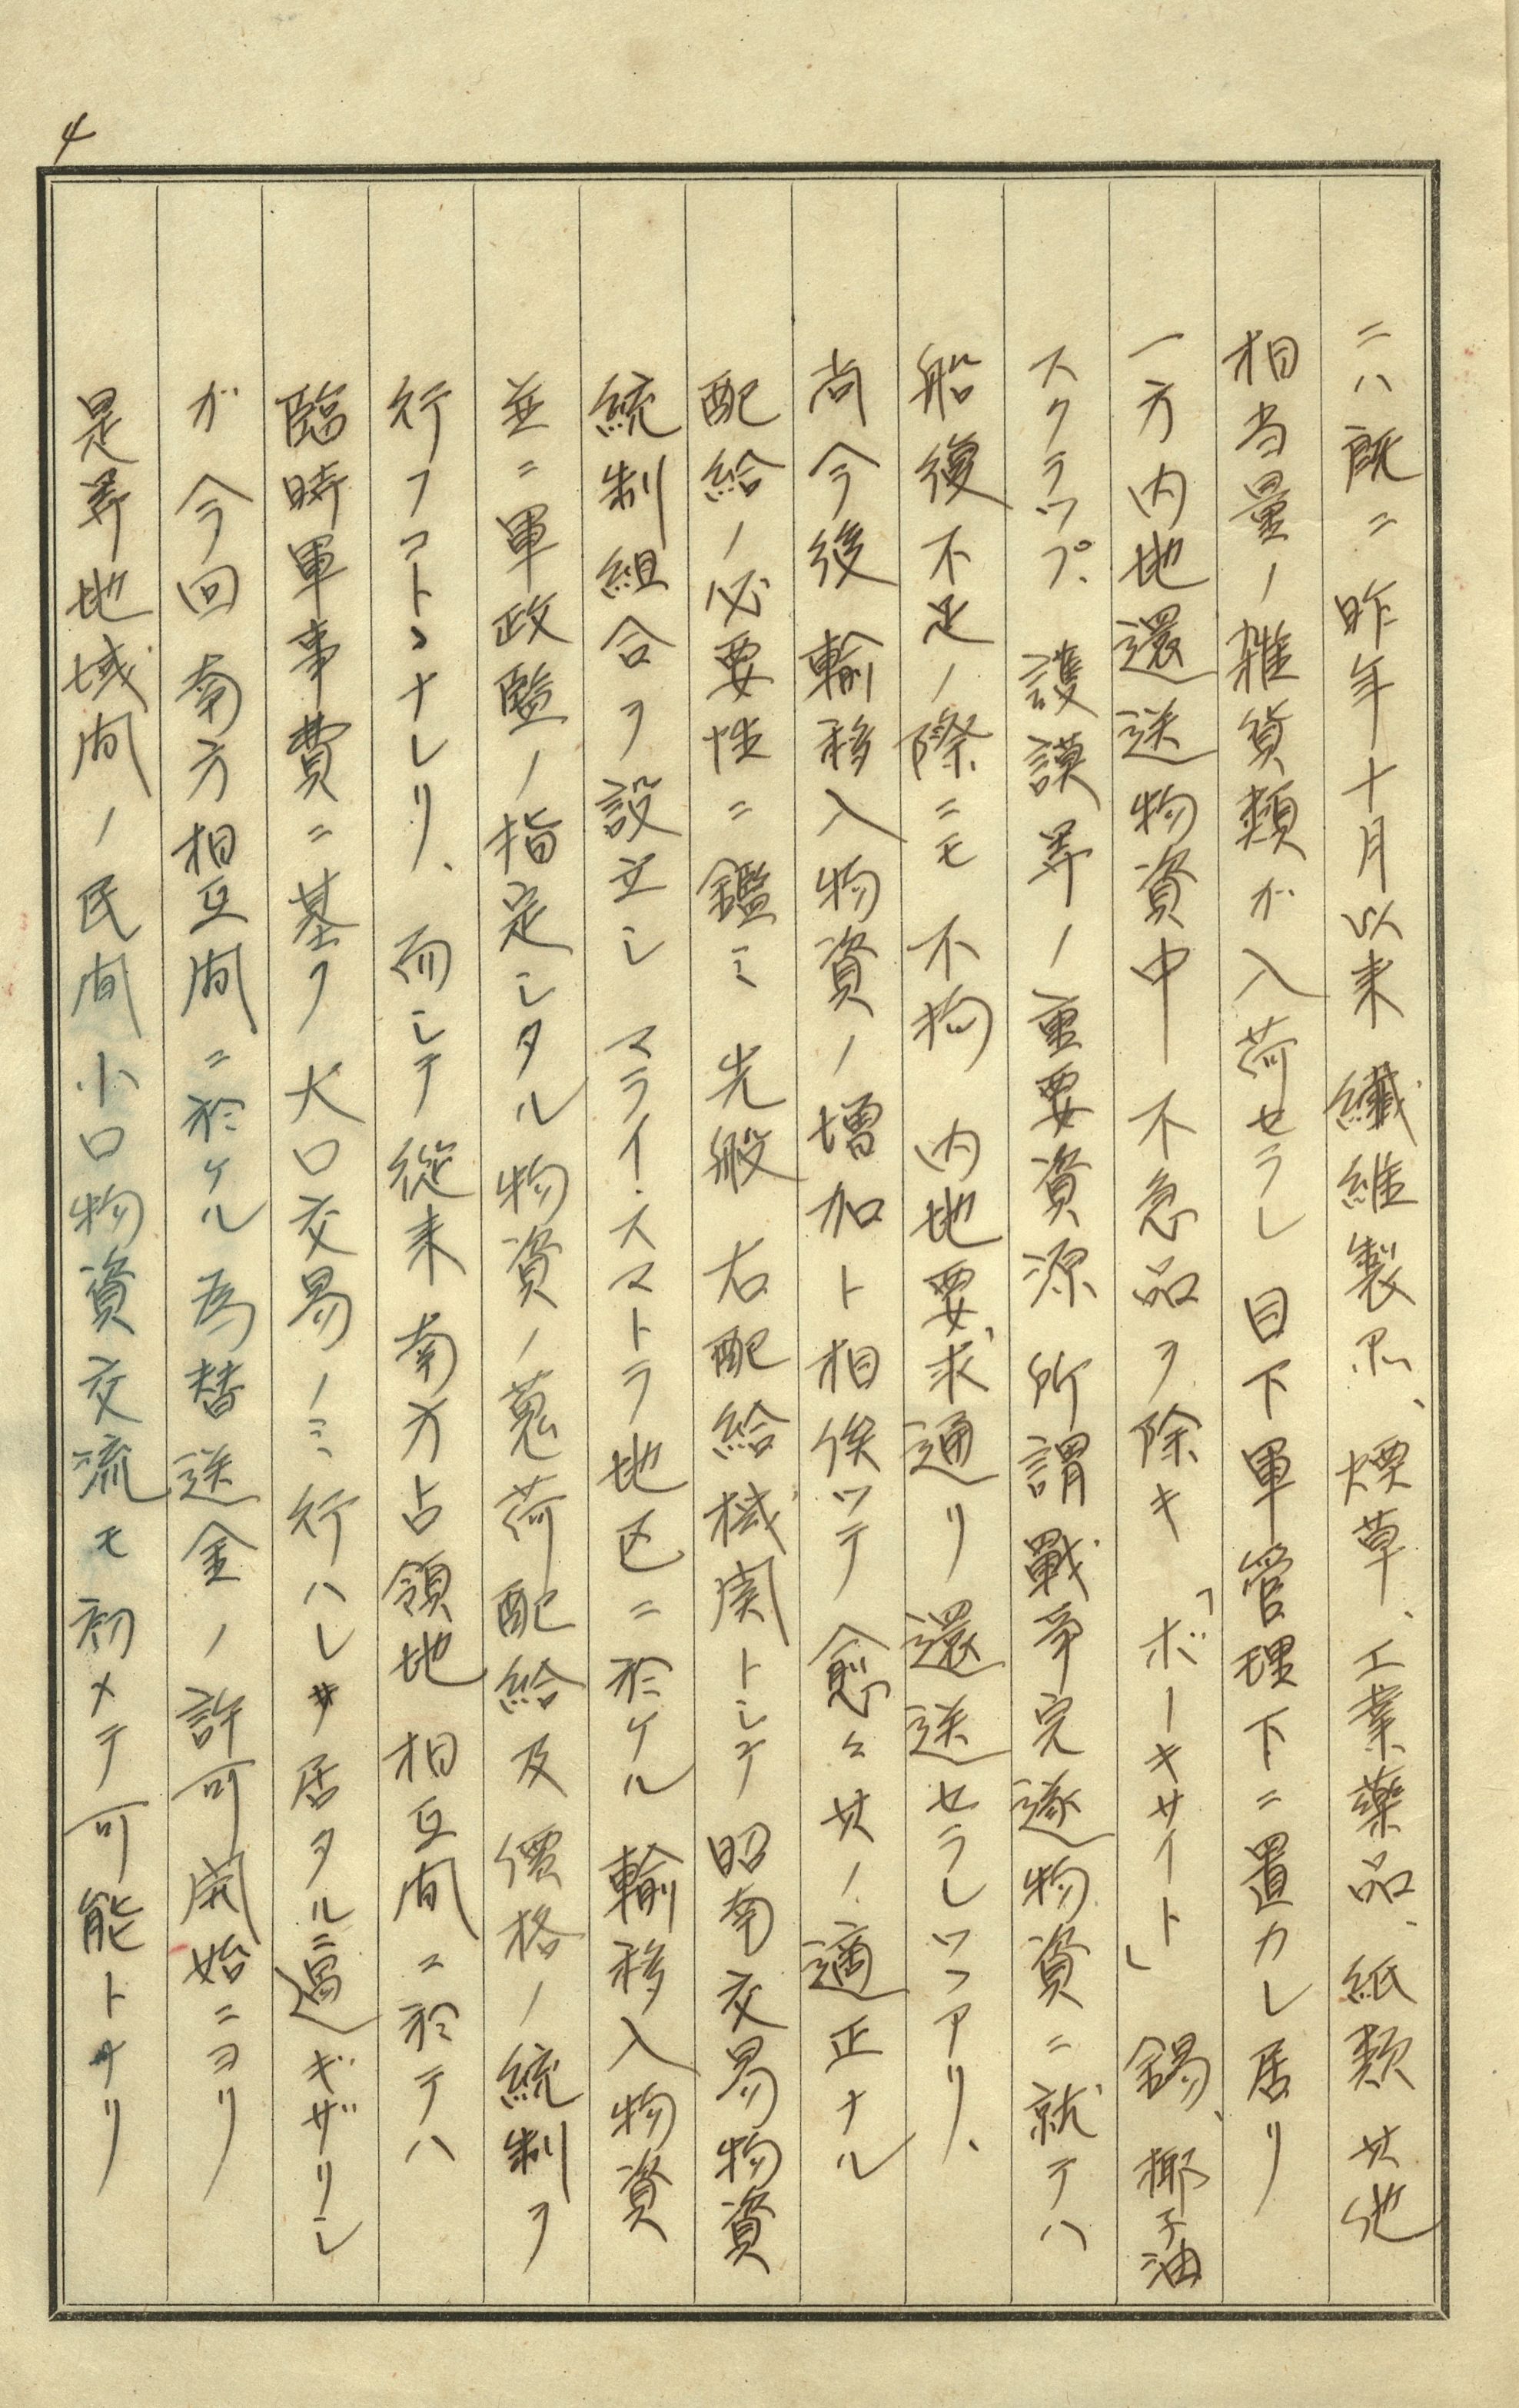 4
ニハ既ニ昨年十月以来繊維製品、煙草、工業薬品、紙類其他
相当量ノ雑貨類ガ入荷セラレ目下軍管理下ニ置カレ居リ
一方内地還送物資中不急品ヲ除キ「ボーキサイト」錫、椰子油
スクラップ、護謨等ノ重要資源所謂戰爭完遂物資ニ就テハ
船復不足ノ際ニモ不拘内地要求通リ還送セラレツツアリ、
尚今後輸移入物資ノ増加ト相俟ツテ愈々其ノ適正ナル
配給ノ必要性ニ鑑ミ先般右配給機関トシテ昭南交易物資
統制組合ヲ設立シマライ・スマトラ地区ニ於ケル輸移入物資
並ニ軍政監ノ指定シタル物資ノ蒐荷配給及價格ノ統制ヲ
行フコトヽナレリ、而シテ従来南方占領地相互間ニ於テハ
臨時軍事費ニ基ク大口交易ノミ行ハレ居タルニ過ギザリシ
ガ今回南方相互間ニ於ケル為替送金ノ許可開始ニヨリ
是等地域間ノ民間小口物資交流モ初メテ可能トナリ